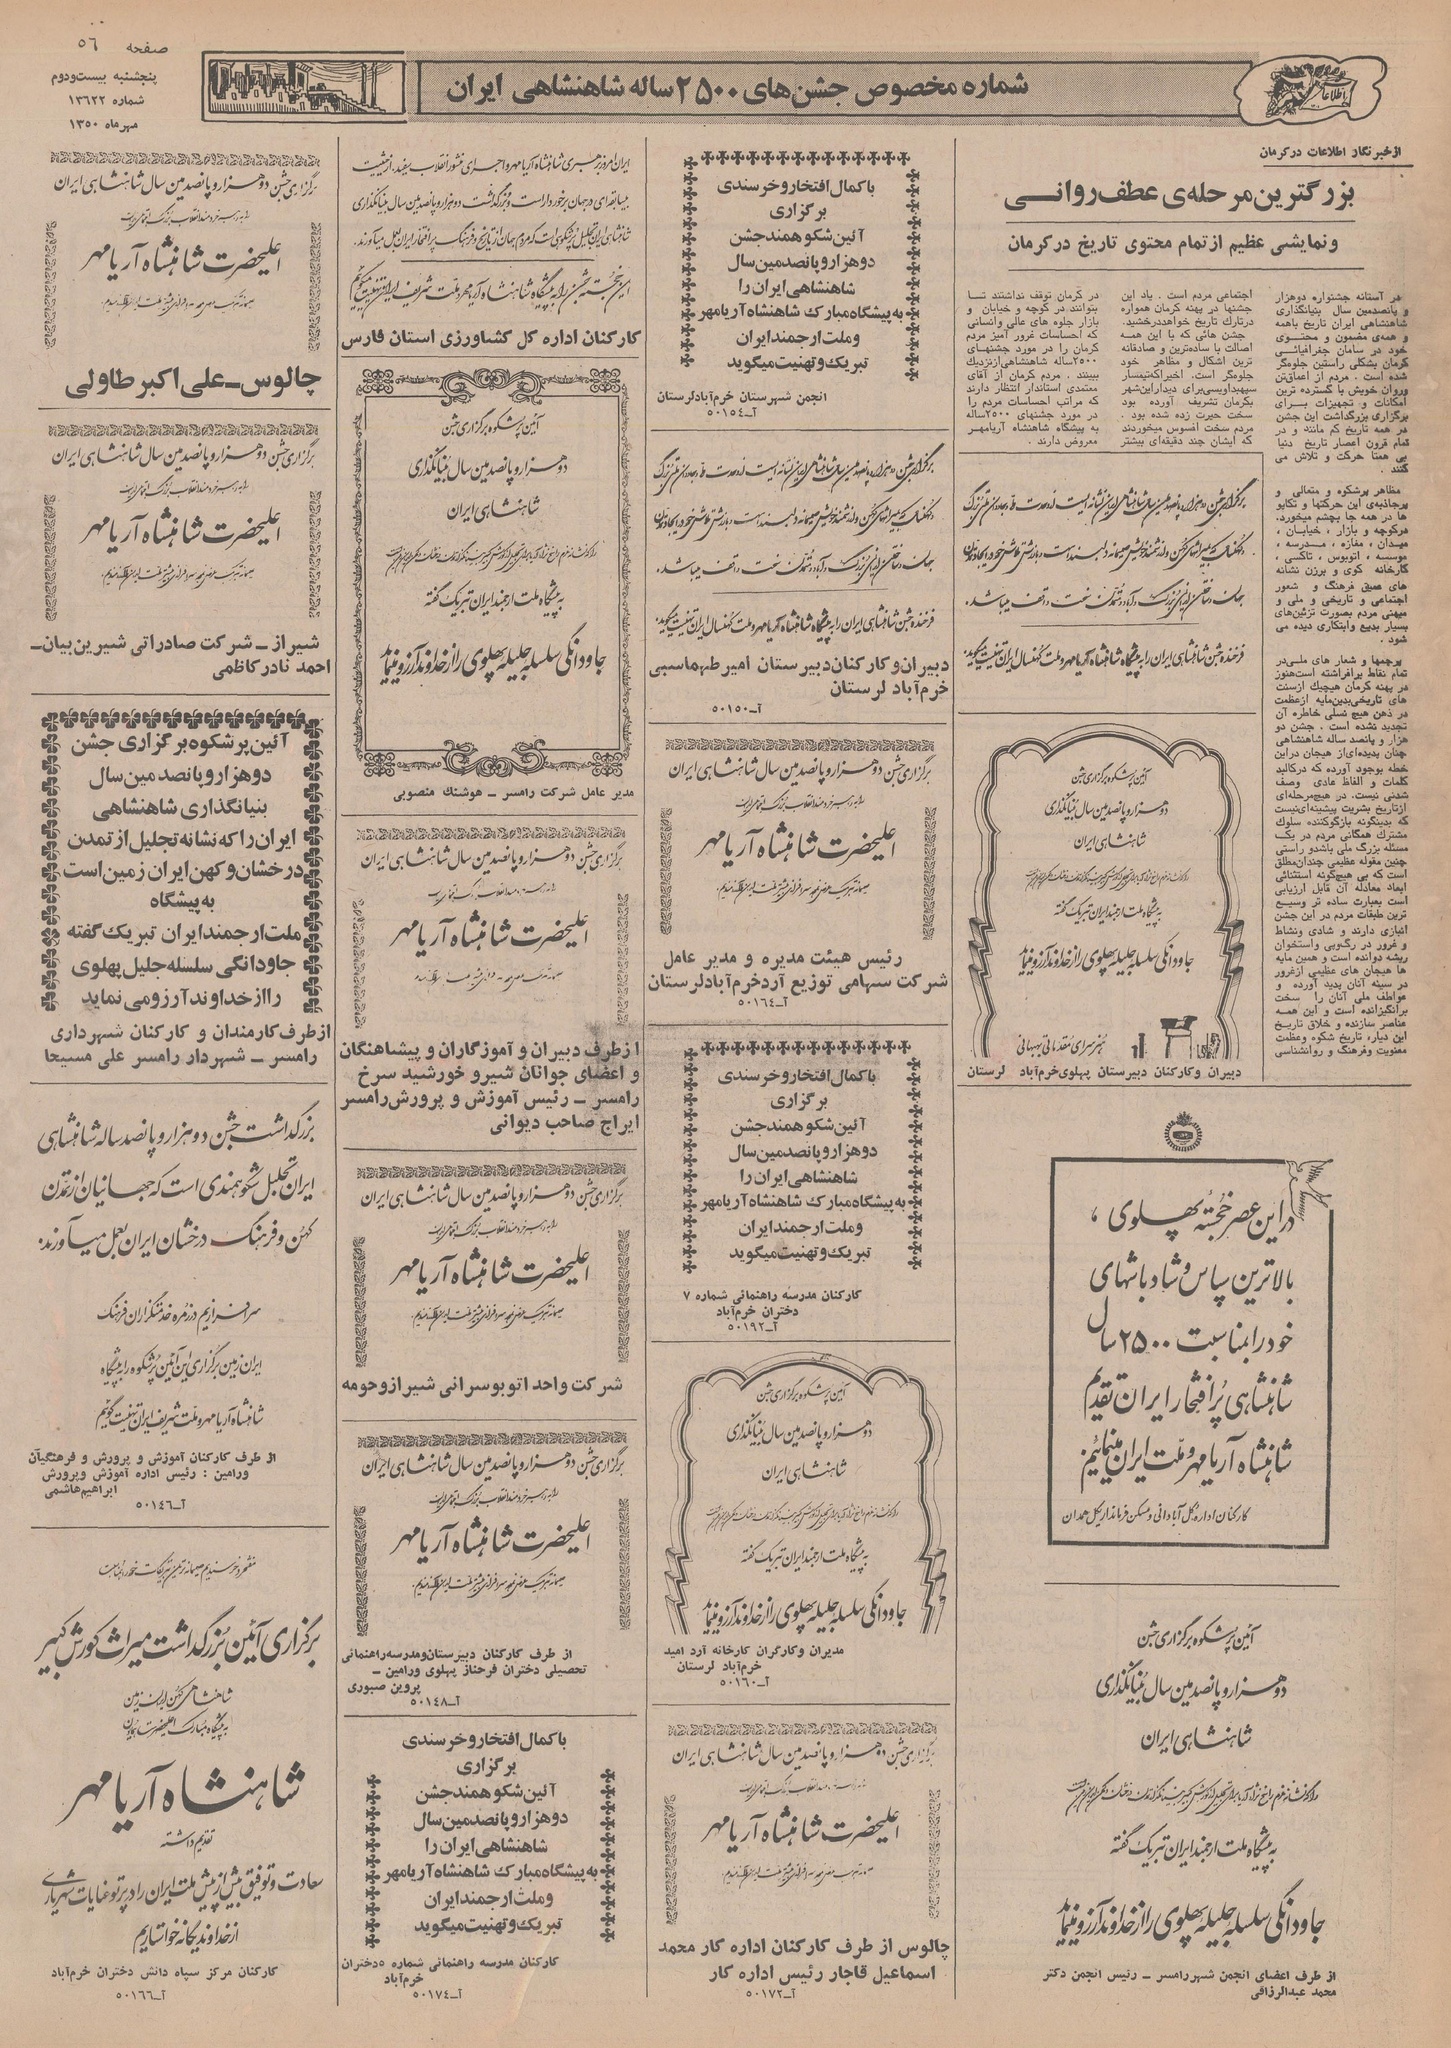 صفحه ۵۶
پنجشنبه بیست‌ودوم
شماره ۱۳۶۲۲
مهرماه ۱۳۵۰
شماره مخصوص جشن‌های ۲۵۰۰ ساله شاهنشاهی ایران
اطلاعات
از خبرنگار اطلاعات در کرمان
بزرگترین مرحله‌ی عطف روانی
و نمایشی عظیم از تمام محتوی تاریخ در کرمان
در آستانه جشنواره دوهزار
و پانصدمین سال بنیانگذاری
شاهنشاهی ایران تاریخ باهمه
و همه‌ی مضمون و محتوی
خود در سامان جغرافیائی
کرمان بشکلی راستین جلوه‌گر
شده است . مردم از اعماق‌تن
وروان خویش با گسترده ترین
امکانات و تجهیزات برای
برگزاری بزرگداشت این جشن
در همه تاریخ کم مانند و در
تمام قرون اعصار تاریخ دنیا
بی همتا حرکت و تلاش می
کنند .
مظاهر پرشکوه و متعالی و
پرجاذبه‌ی این حرکتها و تکاپو
ها در همه جا بچشم میخورد.
هرکوچه و بازار ، خیابان ،
میدان ، مغازه ، مدرسه ،
موسسه ، اتوبوس ، تاکسی ،
کارخانه کوی و برزن نشانه
های عمیق فرهنگ و شعور
اجتماعی و تاریخی و ملی و
میهنی مردم بصورت تزئین‌های
بسیار بدیع وابتکاری دیده می
شود .
پرچمها و شعار های ملی‌در
تمام نقاط برافراشته است‌هنوز
در پهنه کرمان هیچیک ازسنت
های تاریخی‌بدین‌مایه ازعظمت
در ذهن هیچ نسلی خاطره آن
تجدید نشده است . جشن دو
هزار و پانصد ساله شاهنشاهی
چنان پدیده‌ای‌از هیجان دراین
خطه بوجود آورده که درکالبد
کلمات و الفاظ عادی وصف
شدنی نیست. در هیچ‌مرحله‌ای
ازتاریخ بشریت پیشینه‌ای‌نیست
که بدینگونه بازگوکننده سلوك
مشترك همگانی مردم در یك
مسئله بزرگ ملی باشدو راستی
چنین مقوله عظیمی چندان‌مطلق
است که بی هیچ‌گونه استثنائی
ابعاد معادله آن قابل ارزیابی
است بعبارت ساده تر وسیع
ترین طبقات مردم در این جشن
انبازی دارند و شادی ونشاط
و غرور در رگ‌وپی واستخوان
ریشه دوانده است و همین مایه
ها هیجان های عظیمی ازغرور
در سینه آنان پدید آورده و
عواطف ملی آنان را سخت
برانگیزانده است و این همه
عناصر سازنده و خلاق تاریخ
این دیار، تاریخ شکوه وعظمت
معنویت وفرهنگ و روانشناسی
اجتماعی مردم است . یاد این
جشنها در پهنه کرمان همواره
درتارك تاریخ خواهددرخشید.
جشن هائی که با این همه
اصالت با ساده‌ترین و صادقانه
ترین اشکال و مظاهر خود
جلوه‌گر است. اخیراکه‌تیمسار
سپهبداویسی‌برای دیداراین‌شهر
بکرمان تشریف آورده بود
سخت حیرت زده شده بود .
مردم سخت افسوس میخوردند
که ایشان چند دقیقه‌ای بیشتر
در کرمان توقف نداشتند تا
بتوانند در کوچه و خیابان و
بازار جلوه های عالی وانسانی
که احساسات غرور آمیز مردم
کرمان را در مورد جشنهای
۲۵۰۰ ساله شاهنشاهی‌ازنزدیك
ببینند . مردم کرمان از آقای
معتمدی استاندار انتظار دارند
که مراتب احساسات مردم را
در مورد جشنهای ۲۵۰۰ساله
به پیشگاه شاهنشاه آریامهر
معروض دارند .
فرخنده جشن شاهنشاهی ایران را به پیشگاه شاهنشاه آریامهر و ملت کهنسال ایران تهنیت میگوید.
آئین پرشکوه برگزاری جشن
دوهزار و پانصدمین سال بنیانگذاری
شاهنشاهی ایران
به پیشگاه ملت ارجمند ایران تبریک گفته
جاودانگی سلسله جلیله پهلوی را از خداوند آرزو مینماید
دبیران وکارکنان دبیرستان پهلوی خرم‌آباد لرستان
در این عصر خجسته پهلوی ،
بالاترین سپاس و شادباشهای
خود را بمناسبت ۲۵۰۰ سال
شاهنشاهی پرافتخار ایران تقدیم
شاهنشاه آریامهر و ملت ایران مینمائیم.
کارکنان اداره کل آبادانی و مسکن فرمانداریکل همدان
آئین پرشکوه برگزاری جشن
دوهزار و پانصدمین سال بنیانگذاری
شاهنشاهی ایران
به پیشگاه ملت ارجمند ایران تبریک گفته
جاودانگی سلسله جلیله پهلوی را از خداوند آرزو مینماید
از طرف اعضای انجمن شهر رامسر – رئیس انجمن دکتر
محمد عبدالرزاقی
باکمال افتخار و خرسندی
برگزاری
آئین شکوهمند جشن
دوهزار و پانصدمین سال
شاهنشاهی ایران را
به پیشگاه مبارك شاهنشاه آریامهر
و ملت ارجمند ایران
تبریك و تهنیت میگوید
انجمن شهرستان خرم‌آباد لرستان
آ–۵۰۱۵۴
فرخنده جشن شاهنشاهی ایران را به پیشگاه شاهنشاه آریامهر و ملت کهنسال ایران تهنیت میگوید.
دبیران و کارکنان دبیرستان امیر طهماسبی
خرم‌آباد لرستان
آ–۵۰۱۵۰
برگزاری جشن دوهزار و پانصدمین سال شاهنشاهی ایران
اعلیحضرت شاهنشاه آریامهر
رئیس هیئت مدیره و مدیر عامل
شرکت سهامی توزیع آرد خرم‌آباد لرستان
آ–۵۰۱۶۴
باکمال افتخار و خرسندی
برگزاری
آئین شکوهمند جشن
دوهزار و پانصدمین سال
شاهنشاهی ایران را
به پیشگاه مبارك شاهنشاه آریامهر
و ملت ارجمند ایران
تبریك و تهنیت میگوید
کارکنان مدرسه راهنمائی شماره ۷
دختران خرم‌آباد
آ–۵۰۱۹۲
آئین پرشکوه برگزاری جشن
دوهزار و پانصدمین سال بنیانگذاری
شاهنشاهی ایران
به پیشگاه ملت ارجمند ایران تبریک گفته
جاودانگی سلسله جلیله پهلوی را از خداوند آرزو مینماید
مدیران وکارگران کارخانه آرد امید
خرم‌آباد لرستان
آ–۵۰۱۶۰
برگزاری جشن دوهزار و پانصدمین سال شاهنشاهی ایران
اعلیحضرت شاهنشاه آریامهر
چالوس از طرف کارکنان اداره کار محمد
اسماعیل قاجار رئیس اداره کار
آ–۵۰۱۷۲
ایران امروز برهبری شاهنشاه آریامهر و اجرای منشور انقلاب سفید، از حیثیت
بیسابقه‌ای در جهان برخوردار است و بزرگداشت دوهزار و پانصدمین سال بنیانگذاری
شاهنشاهی ایران تجلیل پرشکوهی است که مردم جهان از تاریخ و فرهنگ پرافتخار ایران بعمل میآورند.
این خجسته جشن را به پیشگاه شاهنشاه آریامهر و ملت شریف ایران تهنیت میگوئیم
کارکنان اداره کل کشاورزی استان فارس
آئین پرشکوه برگزاری جشن
دوهزار و پانصدمین سال بنیانگذاری
شاهنشاهی ایران
به پیشگاه ملت ارجمند ایران تبریک گفته
جاودانگی سلسله جلیله پهلوی را از خداوند آرزو مینماید
مدیر عامل شرکت رامسر – هوشنك منصوبی
برگزاری جشن دوهزار و پانصدمین سال شاهنشاهی ایران
اعلیحضرت شاهنشاه آریامهر
از طرف دبیران و آموزگاران و پیشاهنگان
و اعضای جوانان شیر و خورشید سرخ
رامسر – رئیس آموزش و پرورش رامسر
ایراج صاحب دیوانی
برگزاری جشن دوهزار و پانصدمین سال شاهنشاهی ایران
اعلیحضرت شاهنشاه آریامهر
شرکت واحد اتوبوسرانی شیراز و حومه
برگزاری جشن دوهزار و پانصدمین سال شاهنشاهی ایران
اعلیحضرت شاهنشاه آریامهر
از طرف کارکنان دبیرستان‌ومدرسه راهنمائی
تحصیلی دختران فرحناز پهلوی ورامین –
پروین صبوری
آ–۵۰۱۴۸
باکمال افتخار و خرسندی
برگزاری
آئین شکوهمند جشن
دوهزار و پانصدمین سال
شاهنشاهی ایران را
به پیشگاه مبارك شاهنشاه آریامهر
و ملت ارجمند ایران
تبریك و تهنیت میگوید
کارکنان مدرسه راهنمائی شماره ۵ دختران
خرم‌آباد
آ–۵۰۱۷۴
برگزاری جشن دوهزار و پانصدمین سال شاهنشاهی ایران
اعلیحضرت شاهنشاه آریامهر
چالوس – علی اکبر طاولی
برگزاری جشن دوهزار و پانصدمین سال شاهنشاهی ایران
اعلیحضرت شاهنشاه آریامهر
شیراز – شرکت صادراتی شیرین بیان –
احمد نادر کاظمی
آئین پرشکوه برگزاری جشن
دوهزار و پانصدمین سال
بنیانگذاری شاهنشاهی
ایران را که نشانه تجلیل از تمدن
درخشان و کهن ایران زمین است
به پیشگاه
ملت ارجمند ایران تبریك گفته
جاودانگی سلسله جلیل پهلوی
را از خداوند آرزو می نماید
از طرف کارمندان و کارکنان شهرداری
رامسر – شهردار رامسر علی مسیحا
بزرگداشت جشن دوهزار و پانصد ساله شاهنشاهی
ایران تجلیل شکوهمندی است که جهانیان از تمدن
کهن و فرهنگ درخشان ایران بعمل میآورند.
سرافرازیم در زمره خدمتگزاران فرهنگ
ایران زمین برگزاری این آئین پرشکوه را به پیشگاه
شاهنشاه آریامهر و ملت شریف ایران تهنیت گوئیم
از طرف کارکنان آموزش و پرورش و فرهنگیان
ورامین : رئیس اداره آموزش وپرورش
ابراهیم هاشمی
آ–۵۰۱۴۶
برگزاری آئین بزرگداشت میراث کورش کبیر
شاهنشاهی کهن ایران زمین
شاهنشاه آریامهر
تقدیم داشته
سعادت و توفیق بیش از پیش ملت ایران را در پرتو عنایات شهریاری
از خداوند یگانه خواستاریم
کارکنان مرکز سپاه دانش دختران خرم‌آباد
آ–۵۰۱۶۶